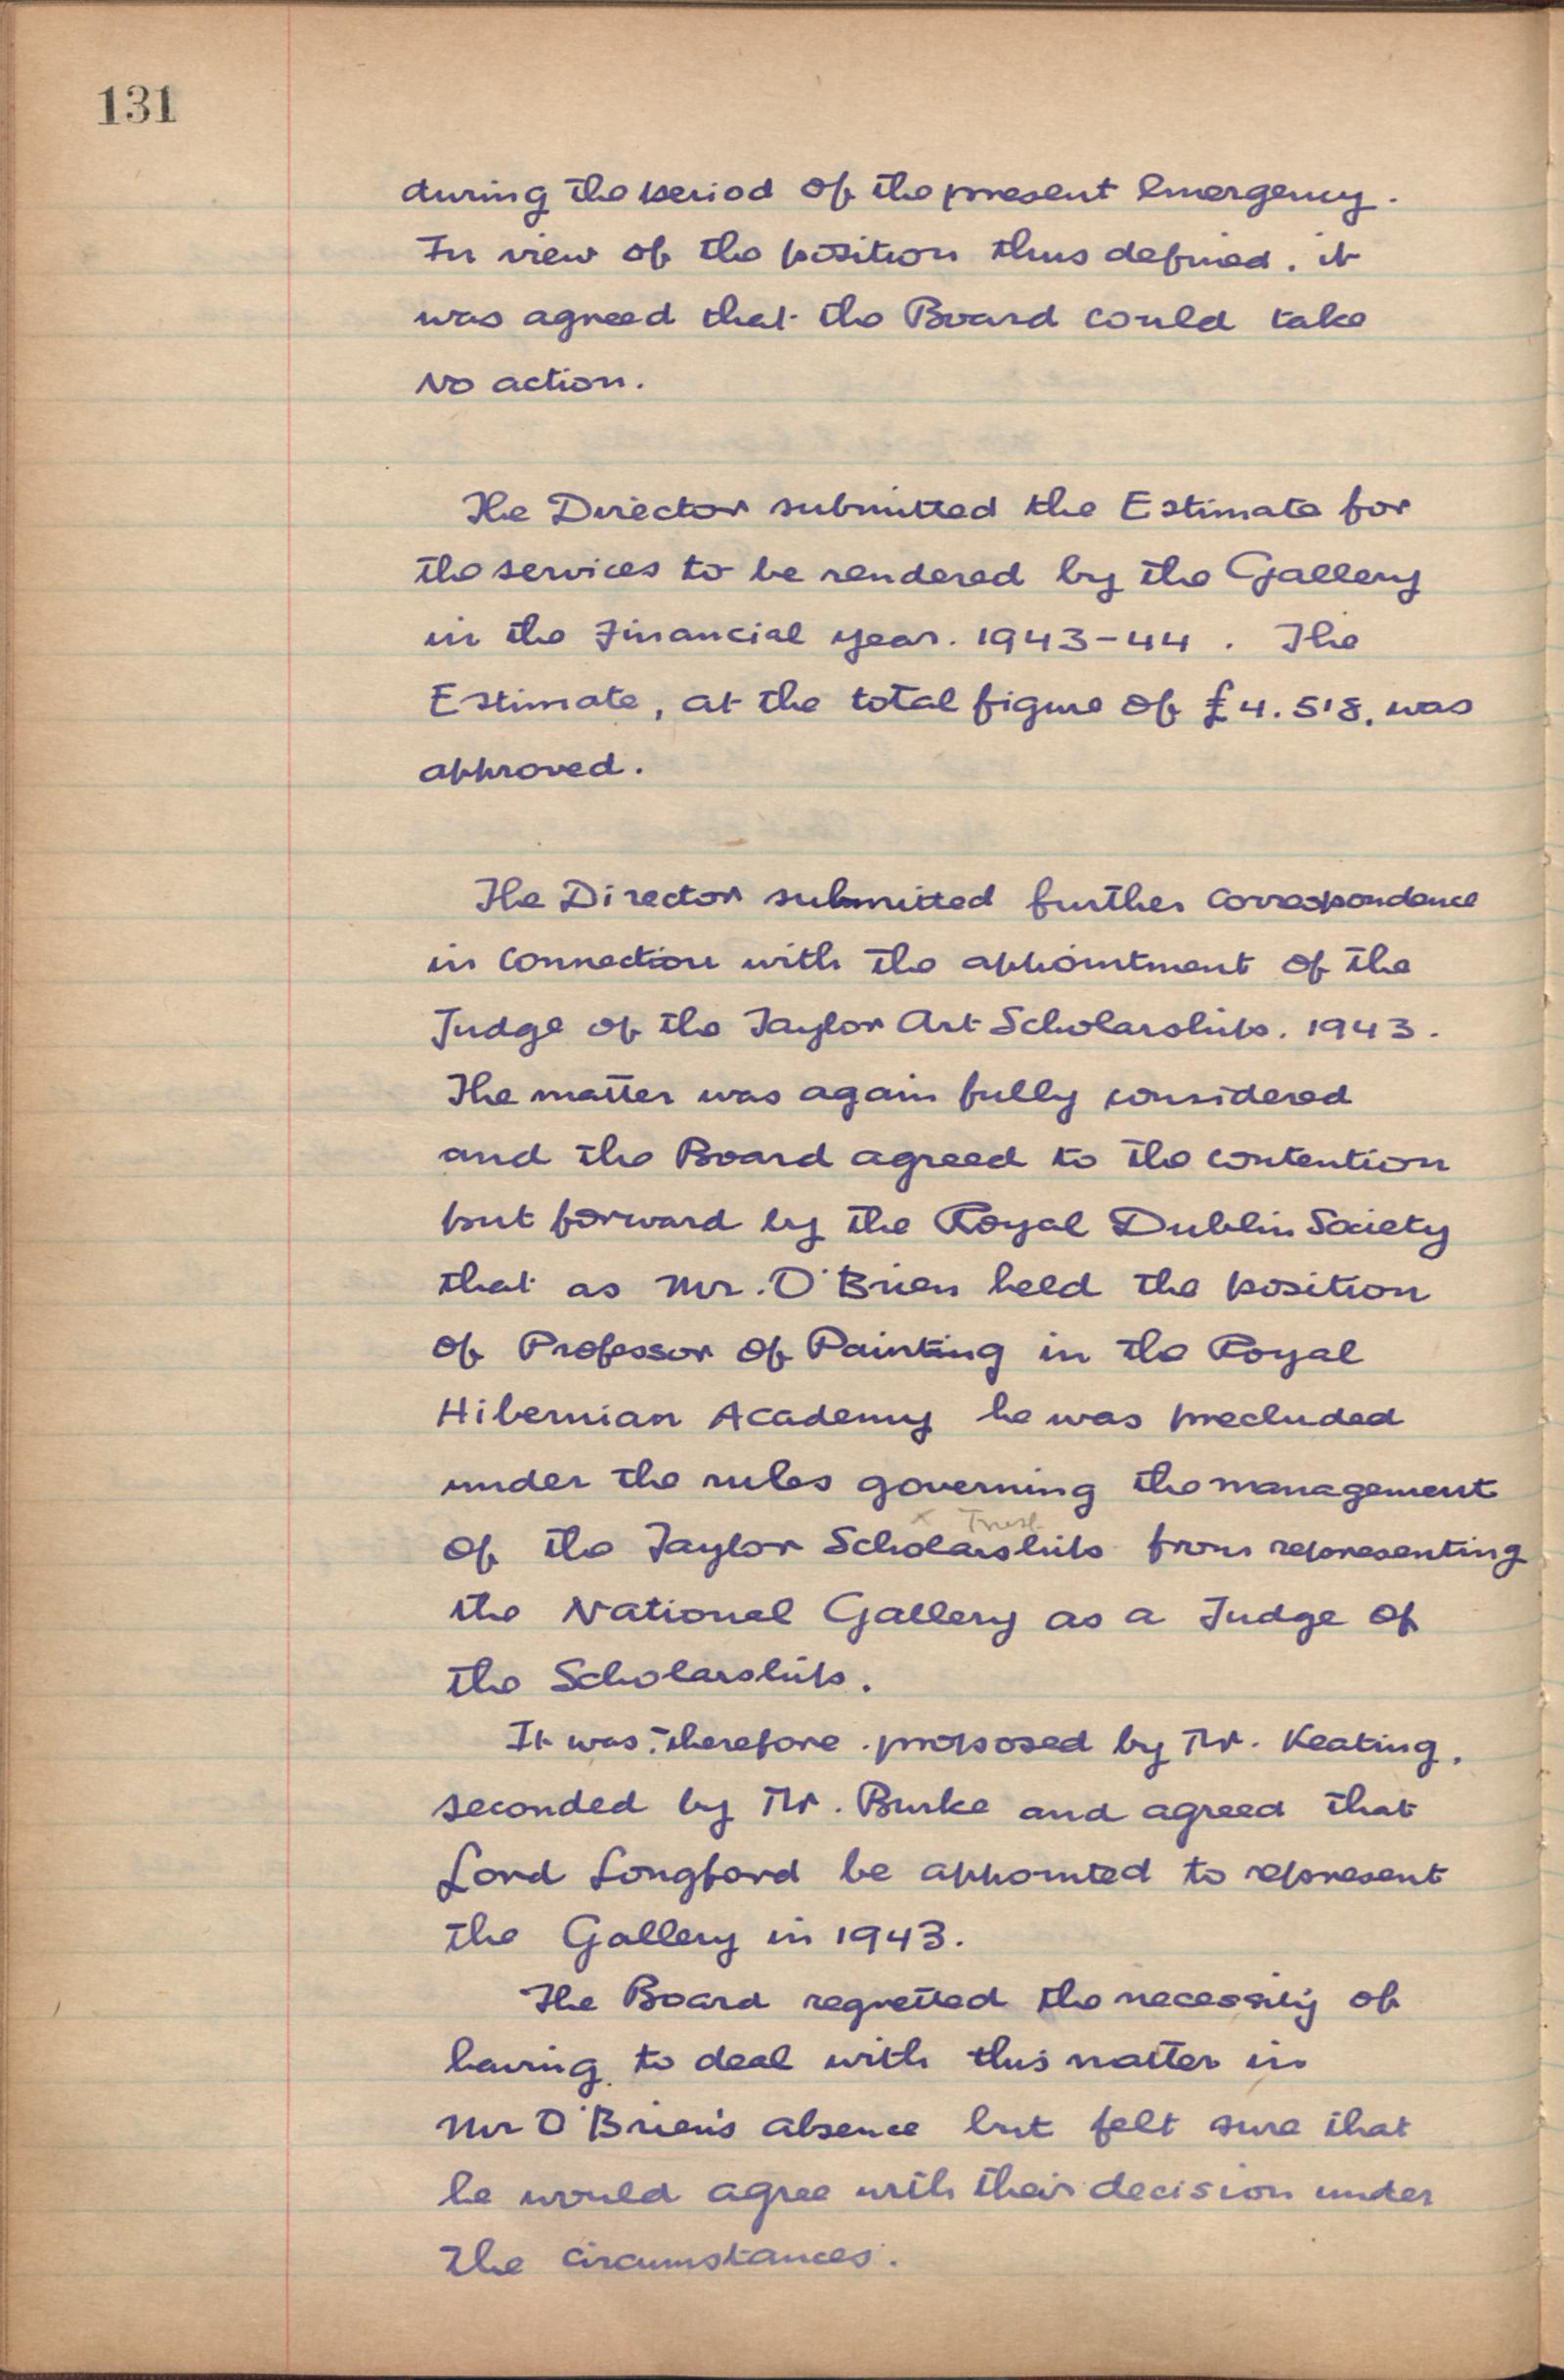 131
during the period of the present emergency.
In view of the position thus defined, it
was agreed that the Board could take
No action.
The Director submitted the Estimate for
the services to be rendered by the Gallery
in the Financial year. 1943-44. The
Estimate, at the total figure of £4.518, was
approved.
The Director submitted further correspondence
in connection with the appointment of the
Judge of the Taylor Art Scholarships. 1943.
The matter was again fully considered
and the Board agreed to the contention
put forward by the Royal Dublin Society
that as Mr. O'Brien held the position
of Professor of Painting in the Royal
Hibernian Academy he was precluded
under the rules governing the management
x Trust
of the Taylor Scholarships from representing
the National Gallery as a Judge of
the Scholarships.
It was, therefore, proposed by Mr. Keating,
seconded by Mr. Burke and agreed that
Lord Longford be appointed to represent
the Gallery in 1943.
The Board regretted the necessity of
having to deal with this matter in
Mr O'Brien's absence but felt sure that
he would agree with their decision under
the circumstances.